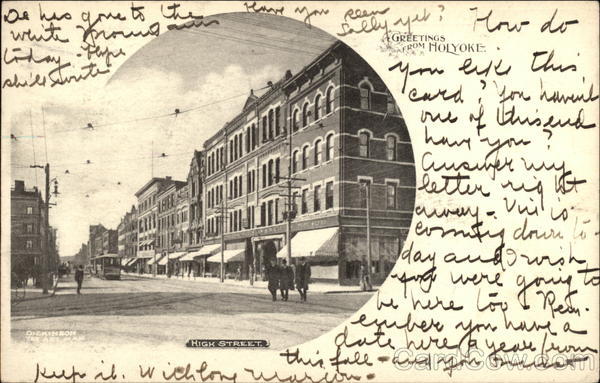 De has gone to the
White Mountains
today. Hope
she'll write
Have you seen
Sally yet?
GREETINGS
FROM HOLYOKE.
How do
you like this
card? You haven't
one of this end
have you?
Answer my
letter right
away - Vi is
coming down to-
day and I wish
you were going to
be here too - Rem-
ember you have a
date here a year from
this fall - and you must
keep it. With love Marion -
DICKINSON
HIGH STREET.
CardCow.com